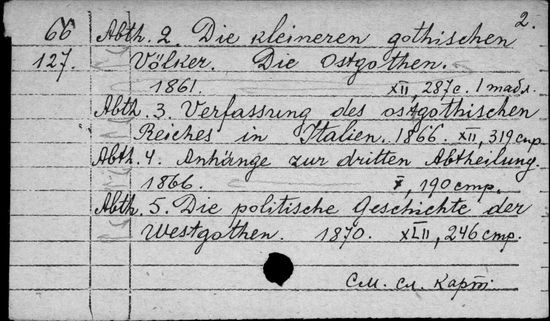 2.
66 Abth. 2. Die kleineren gothischen
127. Völker. Die Ostgothen.
1861. XII, 287 с. 1 табл.
Abth. 3. Verfassung des ostgothischen
Reiches in Italien. 1866. XII, 319 стр.
Abth. 4. Anhänge zur dritten Abtheilung.
1866. X, 190 стр.
Abth. 5. Die politische Geschichte der
Westgothen. 1870. XLII, 246 стр.
См. сл. карт.